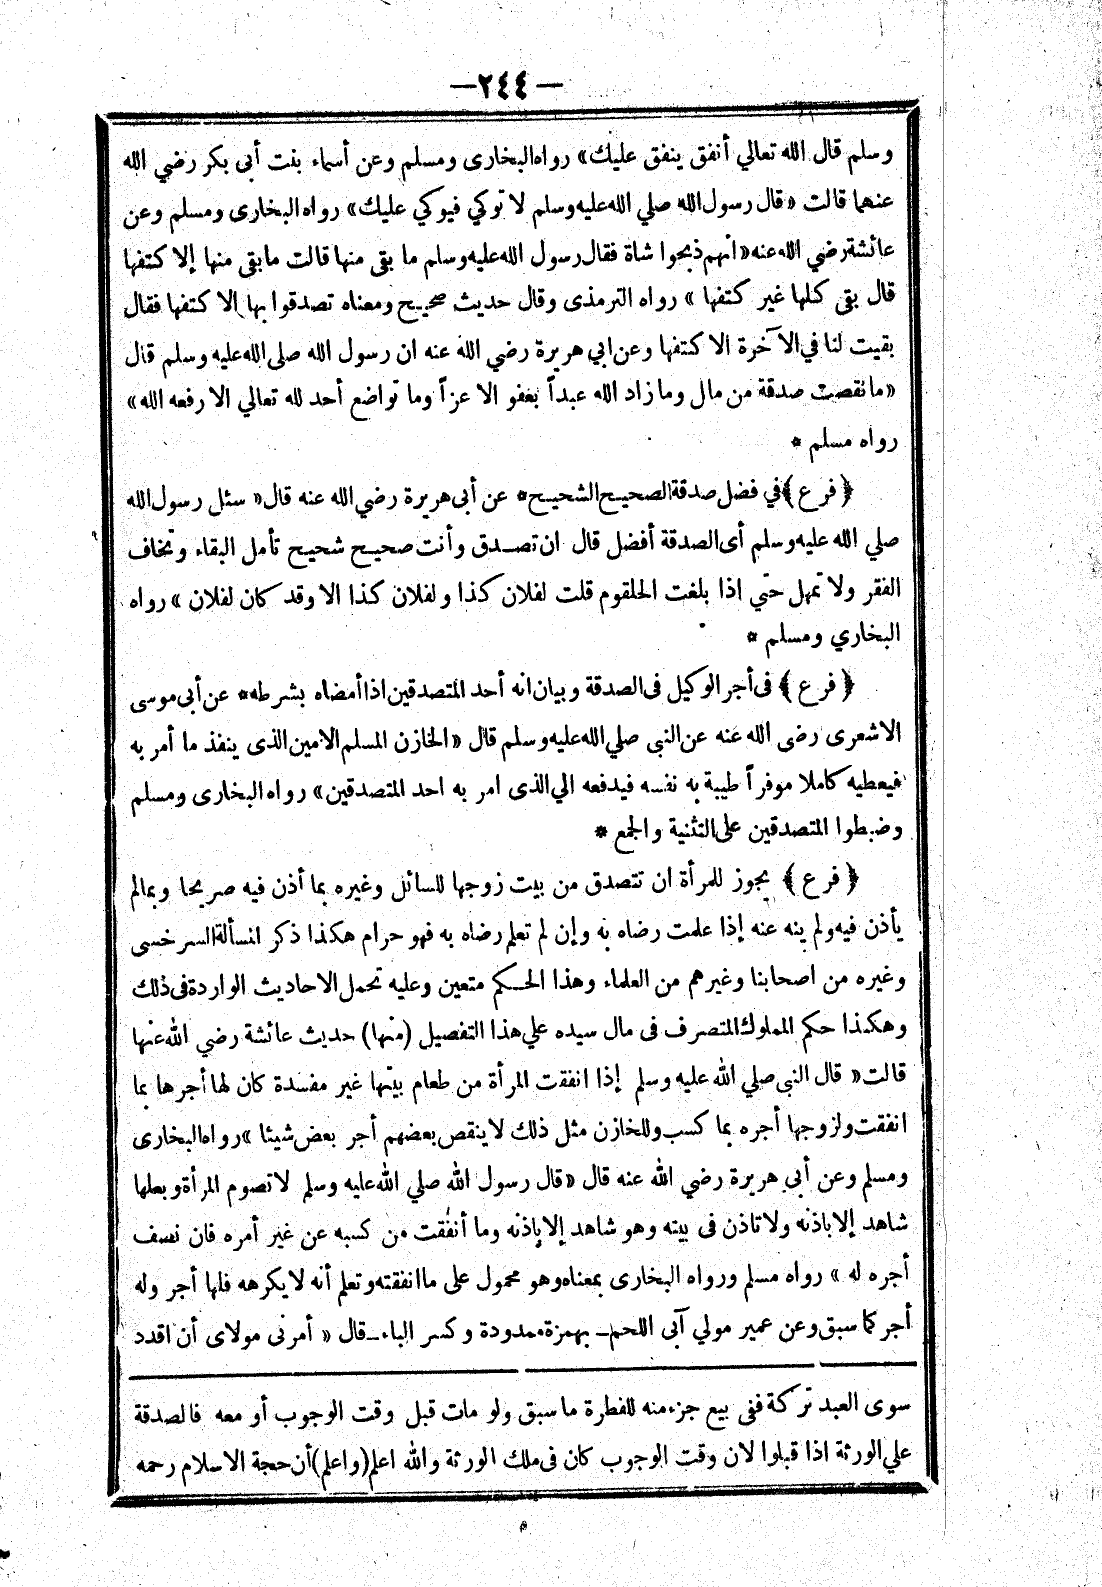 —٢٤٤—
وسلم قال الله تعالي أنفق ينفق عليك» رواه البخارى ومسلم وعن أسماء بنت أبى بكر رضي الله
عنهما قالت «قال رسول الله صلي الله عليه وسلم لا توكي فيوكي عليك» رواه البخارى ومسلم وعن
عائشة رضي الله عنه «انهم ذبحوا شاة فقال رسول الله عليه وسلم ما بقى منها قالت ما بقى منها إلا كتفها
قال بقى كلها غير كتفها» رواه الترمذى وقال حديث صحيح ومعناه تصدقوا بها الا كتفها فقال
بقيت لنا في الآخرة الا كتفها وعن ابي هريرة رضي الله عنه ان رسول الله صلى الله عليه وسلم قال
«ما نقصت صدقة من مال وما زاد الله عبداً بعفو الا عزاً وما تواضع أحد لله تعالي الا رفعه الله»
رواه مسلم *
﴿فرع﴾ في فضل صدقة الصحيح الشحيح* عن أبى هريرة رضي الله عنه قال «سئل رسول الله
صلي الله عليه وسلم أى الصدقة أفضل قال ان تصدق وأنت صحيح شحيح تأمل البقاء وتخاف
الفقر ولا تمهل حتي اذا بلغت الحلقوم قلت لفلان كذا ولفلان كذا الا وقد كان لفلان» رواه
البخاري ومسلم *
﴿فرع﴾ فى أجر الوكيل فى الصدقة وبيان انه أحد المتصدقين اذا أمضاه بشرطه* عن أبى موسى
الاشعرى رضى الله عنه عن النبى صلي الله عليه وسلم قال «الخازن المسلم الامين الذى ينفذ ما أمر به
فيعطيه كاملا موفراً طيبة به نفسه فيدفعه الي الذى امر به احد المتصدقين» رواه البخارى ومسلم
وضبطوا المتصدقين على التثنية والجمع *
﴿فرع﴾ يجوز للمرأة ان تتصدق من بيت زوجها للسائل وغيره بما أذن فيه صريحا وبمالم
يأذن فيه ولم ينه عنه إذا علمت رضاه به وإن لم تعلم رضاه به فهو حرام هكذا ذكر المسألة السرخسى
وغيره من اصحابنا وغيرهم من العلماء وهذا الحكم متعين وعليه تحمل الاحاديث الواردة فى ذلك
وهكذا حكم المملوك المتصرف فى مال سيده علي هذا التفصيل (منها) حديث عائشة رضي الله عنها
قالت «قال النبى صلي الله عليه وسلم إذا انفقت المرأة من طعام بيتها غير مفسدة كان لها أجرها بما
انفقت ولزوجها أجره بما كسب وللخازن مثل ذلك لا ينقص بعضهم أجر بعض شيئا» رواه البخارى
ومسلم وعن أبى هريرة رضي الله عنه قال «قال رسول الله صلي الله عليه وسلم لا تصوم المرأة وبعلها
شاهد إلا باذنه ولا تاذن فى بيته وهو شاهد إلا بإذنه وما أنفقت من كسبه عن غير أمره فان نصف
أجره له» رواه مسلم ورواه البخارى بمعناه وهو محمول على ما انفقته وتعلم أنه لا يكرهه فلها أجر وله
أجر كما سبق وعن عمير مولي آبى اللحم ـ بهمزة ممدودة وكسر الباء ـ قال «أمرنى مولاى أن اقدد
سوى العبد تركة ففى بيع جزء منه للفطرة ما سبق ولو مات قبل وقت الوجوب أو معه فالصدقة
علي الورثة اذا قبلوا لان وقت الوجوب كان فى ملك الورثة والله اعلم (واعلم) أن حجة الاسلام رحمه